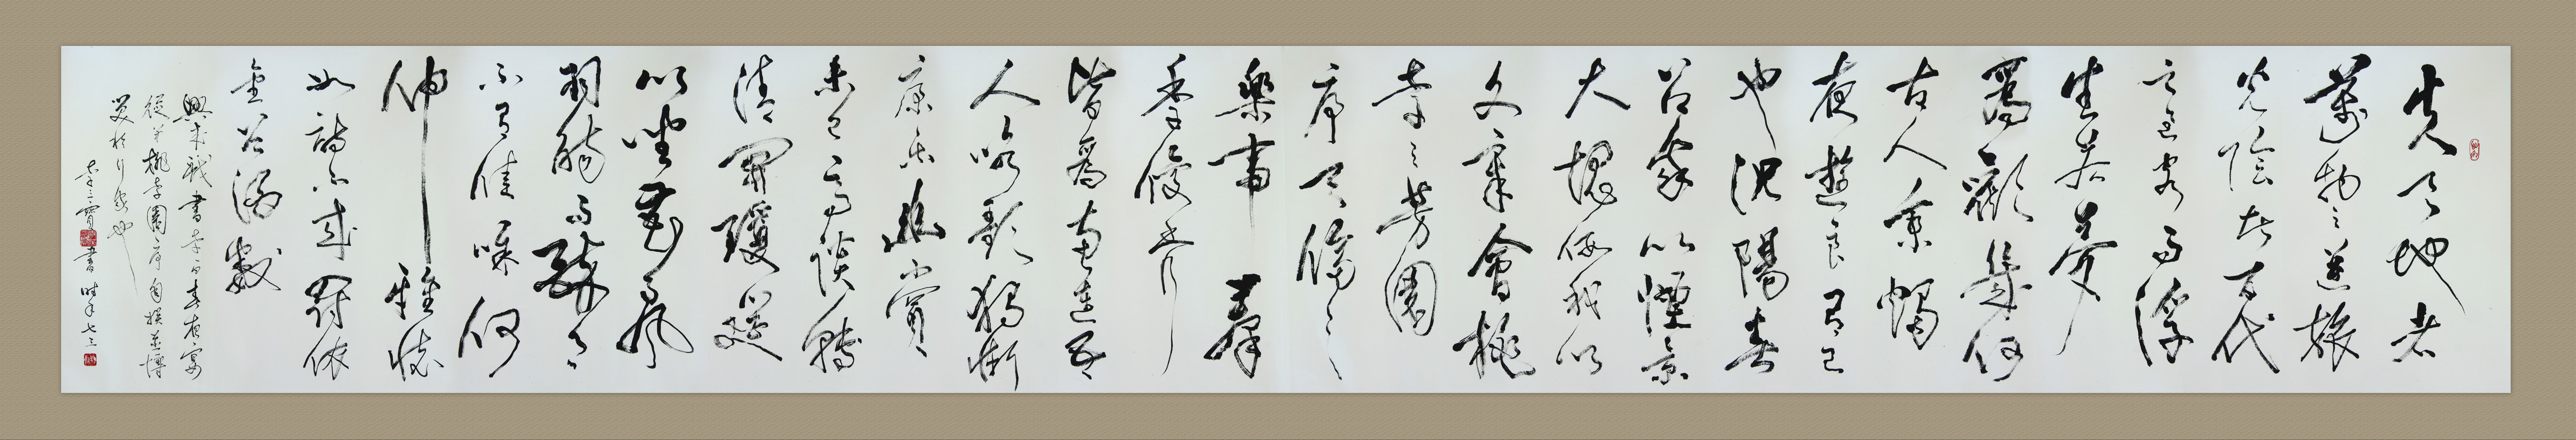 夫天地者
萬物之逆旅
光陰者百代
之過客而浮
生若夢
為歡幾何
古人秉燭
夜遊良有已
也況陽春
召我以煙景
大塊假我以
文章會桃
李之芳園
序天倫之
樂事羣
季俊秀
皆為惠連吾
人詠歌獨慚
康樂幽賞
未已高談轉
清開瓊筵
以坐花飛
羽觴而醉月
不有佳咏何
伸雅懷
如詩不成罰依
金谷酒數
興來戲書李白春夜宴
從弟桃李園序自娛並博
笑於行家也
李三寶書時年七三